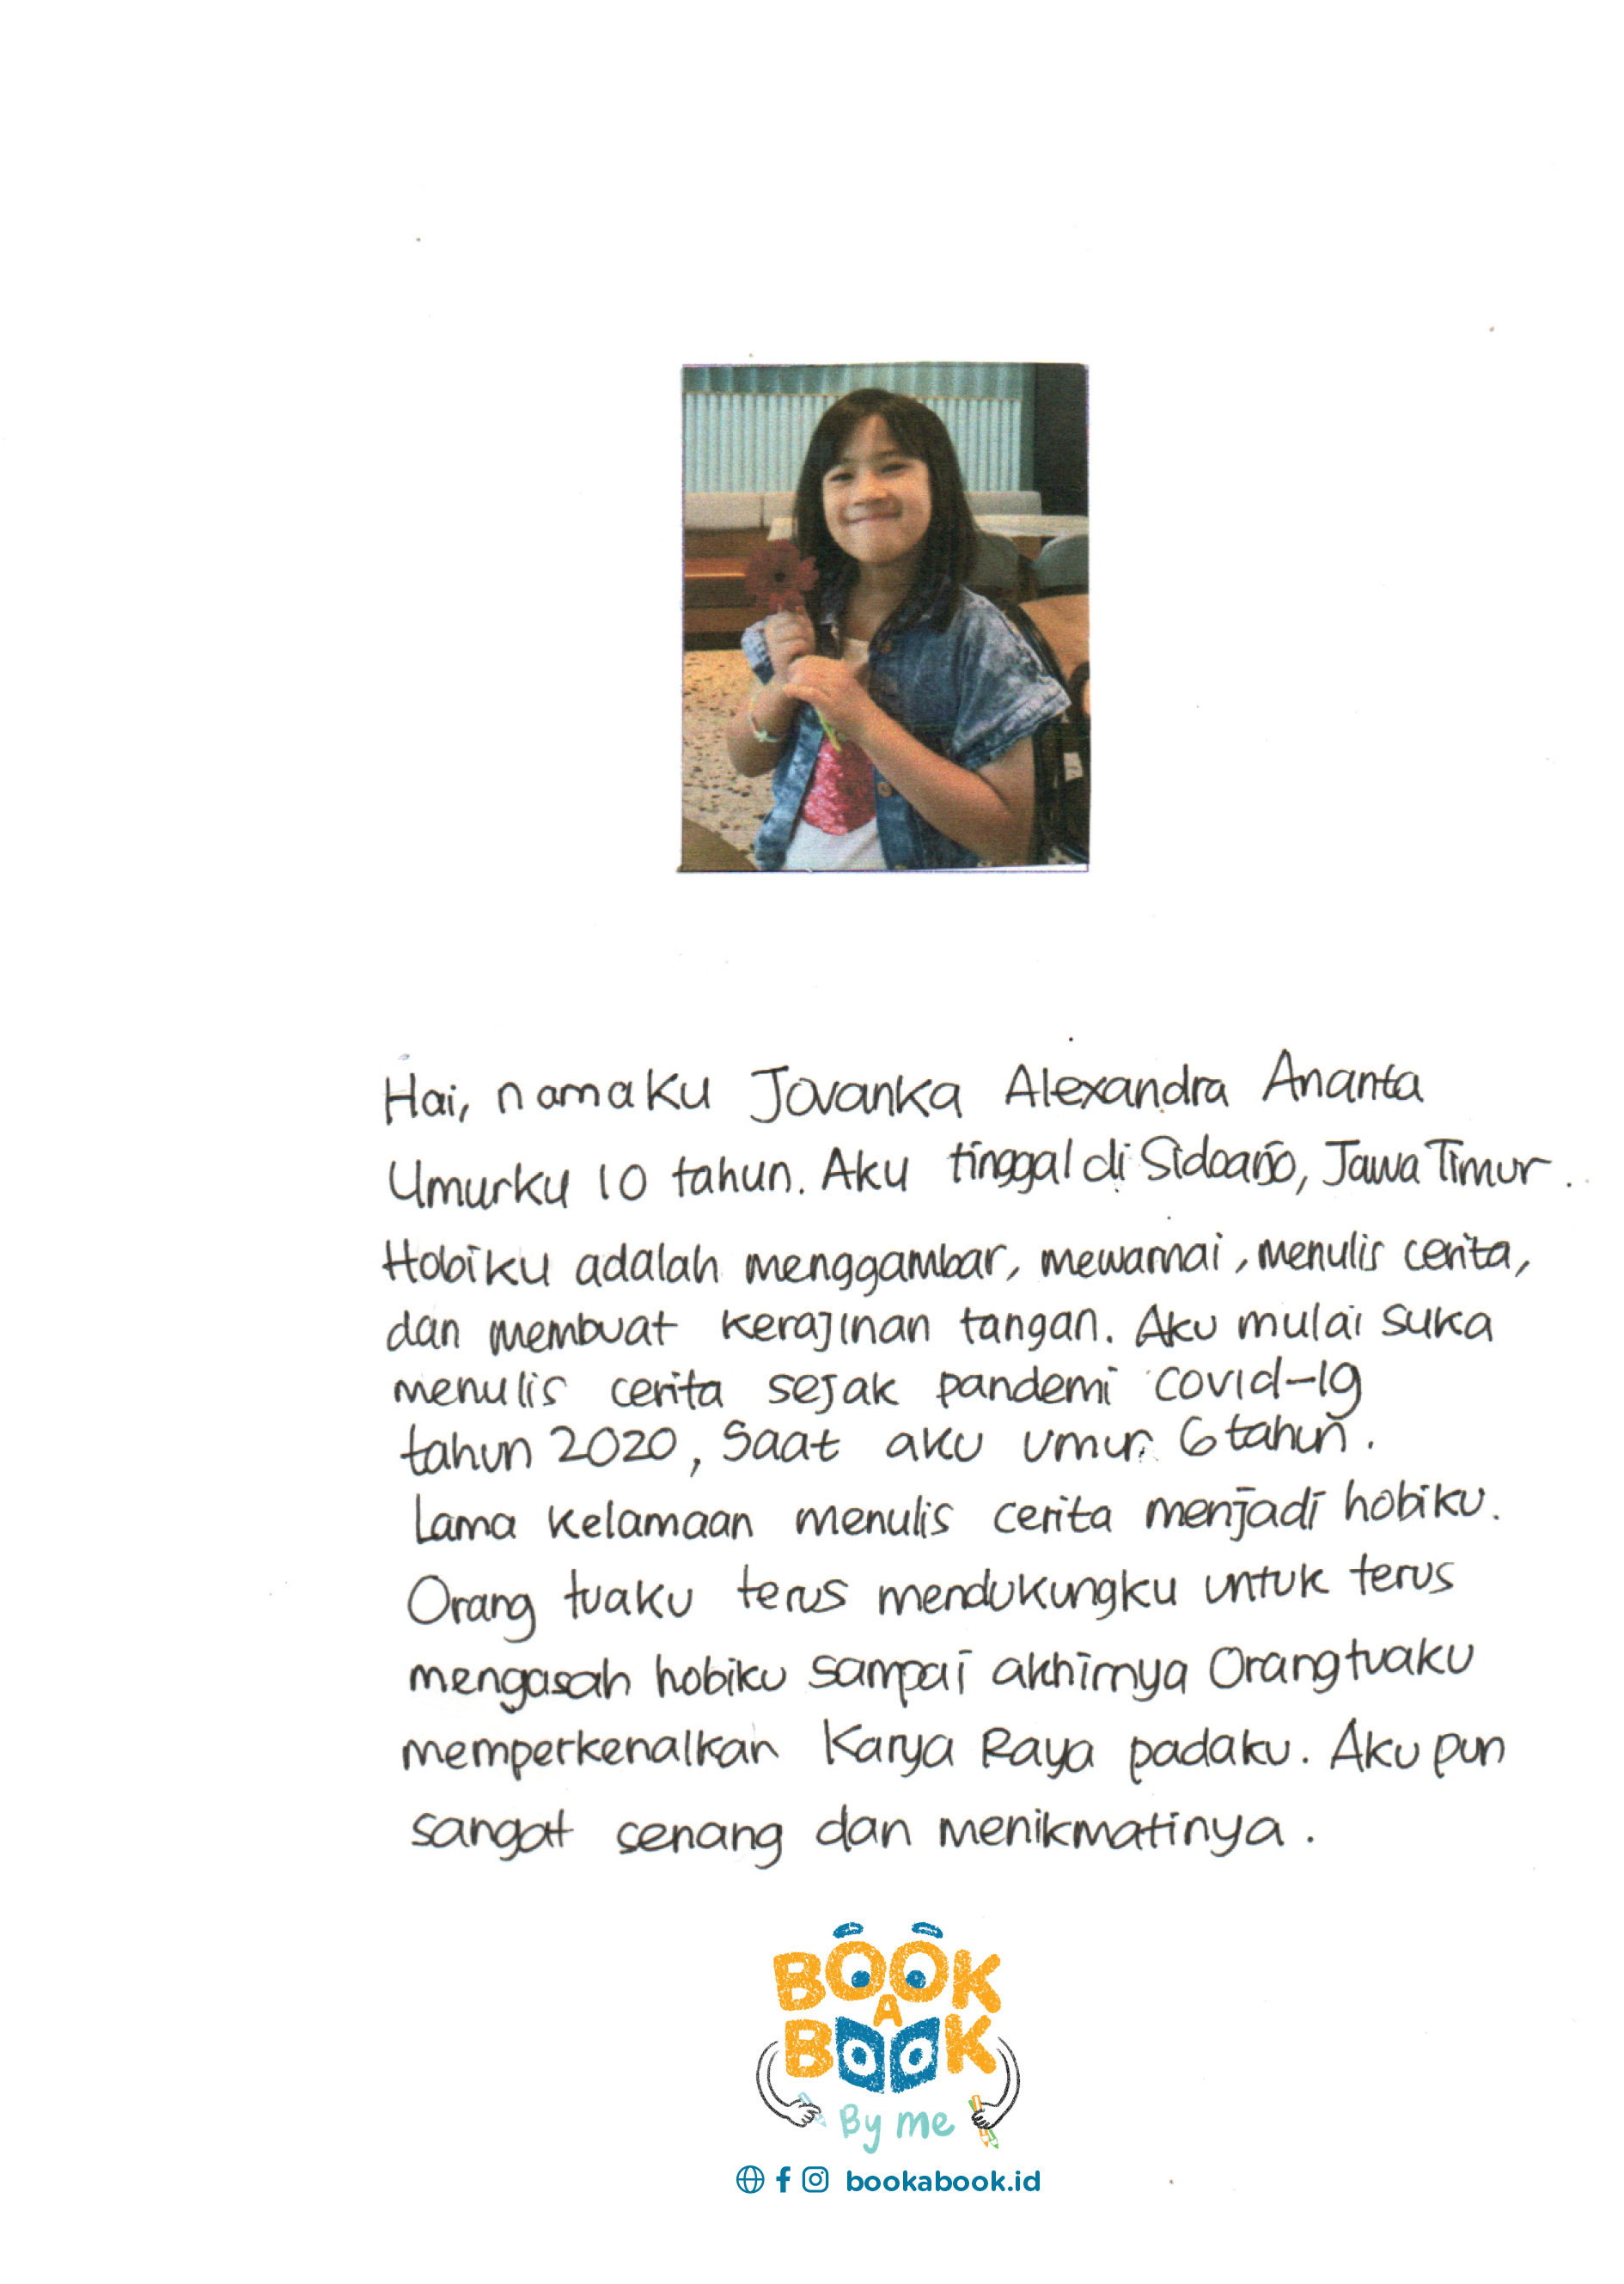 Hai, namaku Jovanka Alexandra Ananta
Umurku 10 tahun. Aku tinggal di Sidoarjo, Jawa Timur.
Hobiku adalah menggambar, mewarnai, menulis cerita,
dan membuat kerajinan tangan. Aku mulai suka
menulis cerita sejak pandemi covid-19
tahun 2020, Saat aku umur 6 tahun.
Lama kelamaan menulis cerita menjadi hobiku.
Orang tuaku terus mendukungku untuk terus
mengasah hobiku sampai akhirnya Orangtuaku
memperkenalkan Karya Raya padaku. Aku pun
sangat senang dan menikmatinya.
BOOK
A
BOOK
By me
bookabook.id